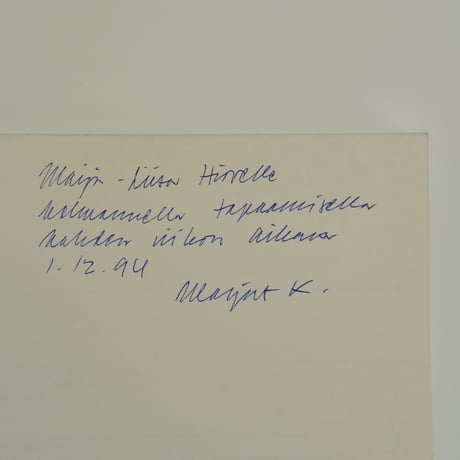 Maija-Liisa Hirvelle
kolmannella tapaamisella
kahden viikon aikana
1.12.94
Marjut K.